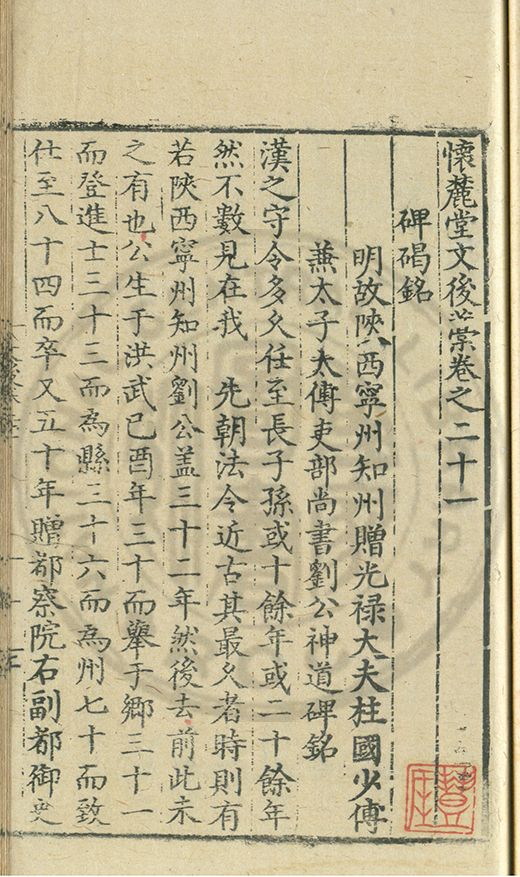 懷麓堂文後藁卷之二十一
碑碣銘
明故陝西寧州知州贈光禄大夫柱國少傅
兼太子太傅吏部尚書劉公神道碑銘
漢之守令多久任至長子孫或十餘年或二十餘年
然不數見在我 先朝法令近古其最久者時則有
若陝西寧州知州劉公盖三十二年然後去前此未
之有也公生于洪武己酉年三十而舉于鄉三十一
而登進士三十三而為縣三十六而為州七十而致
仕至八十四而卒又五十年贈都察院右副都御史